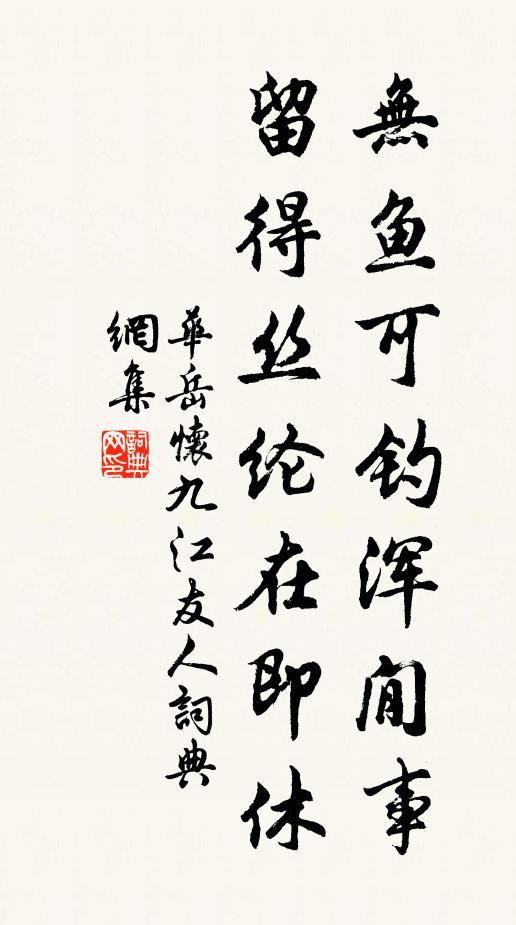 無鱼可钓浑閒事
留得丝纶在即休
華岳懷九江友人詞典
網集
詞典
网印